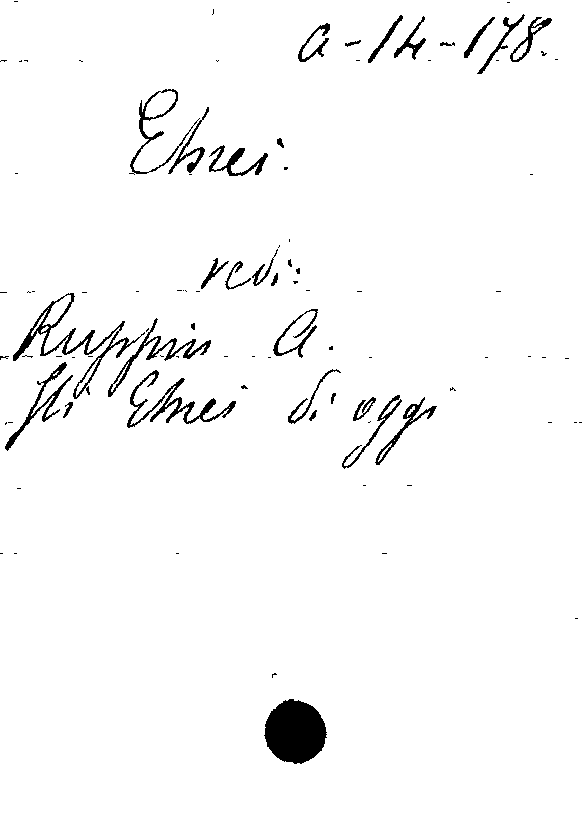 a-14-178.
Ebrei.
vedi:
Ruppin A.
Gli Ebrei di oggi